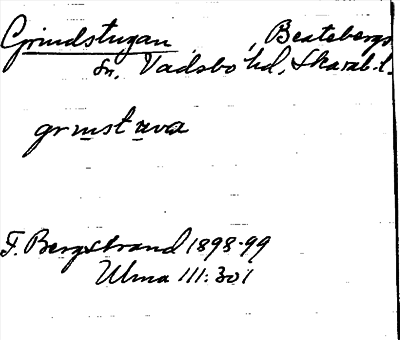 Grindstugan, Beatebergs
sn, Vadsbo hd, Skarab. l.
F. Bergstrand 1898-99
Ulma 111:301